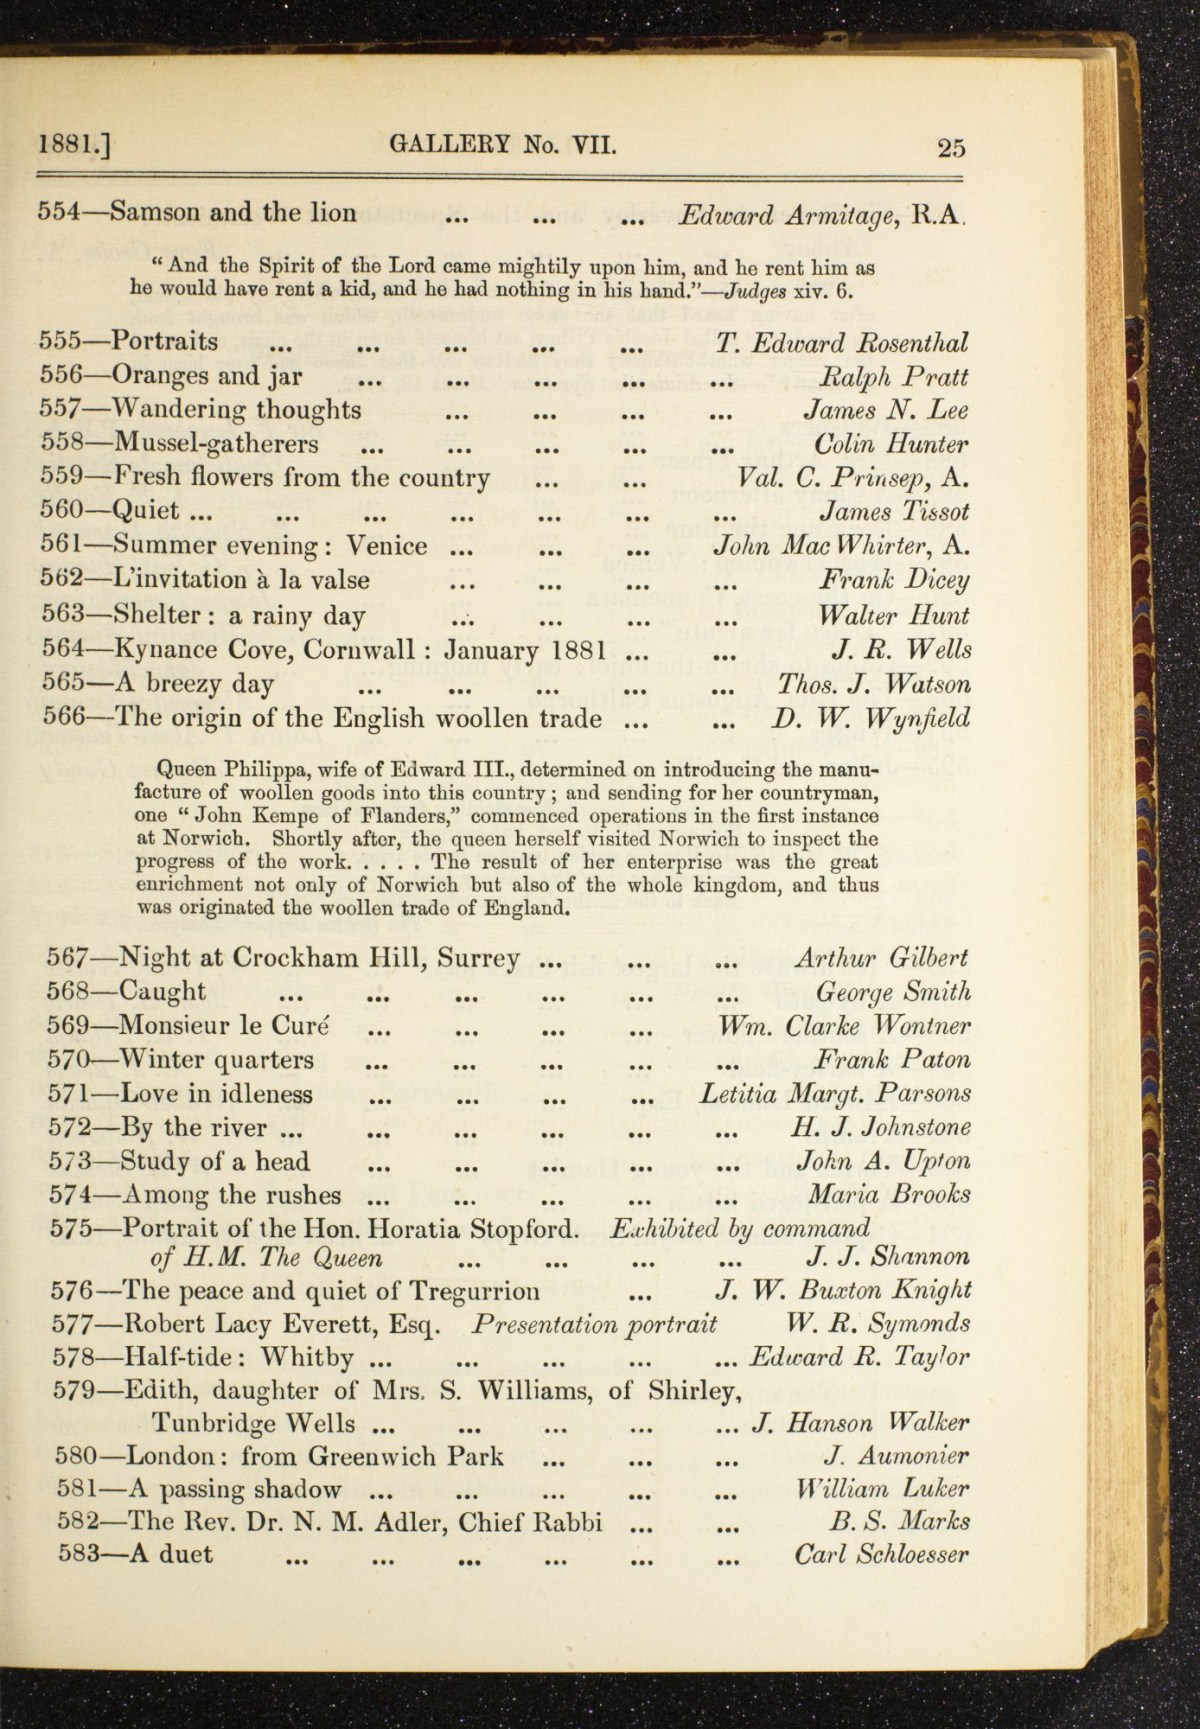 1881.] GALLERY No. VII. 25
554—Samson and the lion ... ... ... Edward Armitage, R.A.
“And the Spirit of the Lord came mightily upon him, and he rent him as
he would have rent a kid, and he had nothing in his hand.”—Judges xiv. 6.
555—Portraits ... ... ... ... ... T. Edward Rosenthal
556—Oranges and jar ... ... ... ... ... Ralph Pratt
557—Wandering thoughts ... ... ... ... James N. Lee
558—Mussel-gatherers ... ... ... ... ... Colin Hunter
559—Fresh flowers from the country ... ... Val. C. Prinsep, A.
560—Quiet ... ... ... ... ... ... ... James Tissot
561—Summer evening: Venice ... ... ... John MacWhirter, A.
562—L'invitation à la valse ... ... ... ... Frank Dicey
563—Shelter: a rainy day ... ... ... ... Walter Hunt
564—Kynance Cove, Cornwall: January 1881 ... ... J. R. Wells
565—A breezy day ... ... ... ... ... Thos. J. Watson
566—The origin of the English woollen trade ... ... D. W. Wynfield
Queen Philippa, wife of Edward III., determined on introducing the manu-
facture of woollen goods into this country; and sending for her countryman,
one “John Kempe of Flanders,” commenced operations in the first instance
at Norwich. Shortly after, the queen herself visited Norwich to inspect the
progress of the work. . . . . The result of her enterprise was the great
enrichment not only of Norwich but also of the whole kingdom, and thus
was originated the woollen trade of England.
567—Night at Crockham Hill, Surrey ... ... ... Arthur Gilbert
568—Caught ... ... ... ... ... ... George Smith
569—Monsieur le Curé ... ... ... ... Wm. Clarke Wontner
570—Winter quarters ... ... ... ... ... Frank Paton
571—Love in idleness ... ... ... ... Letitia Margt. Parsons
572—By the river ... ... ... ... ... ... H. J. Johnstone
573—Study of a head ... ... ... ... ... John A. Upton
574—Among the rushes ... ... ... ... ... Maria Brooks
575—Portrait of the Hon. Horatia Stopford. Exhibited by command
of H.M. The Queen ... ... ... ... J. J. Shannon
576—The peace and quiet of Tregurrion ... J. W. Buxton Knight
577—Robert Lacy Everett, Esq. Presentation portrait W. R. Symonds
578—Half-tide: Whitby ... ... ... ... ... Edward R. Taylor
579—Edith, daughter of Mrs. S. Williams, of Shirley,
Tunbridge Wells ... ... ... ... ... J. Hanson Walker
580—London: from Greenwich Park ... ... ... J. Aumonier
581—A passing shadow ... ... ... ... ... William Luker
582—The Rev. Dr. N. M. Adler, Chief Rabbi ... ... B. S. Marks
583—A duet ... ... ... ... ... ... Carl Schloesser